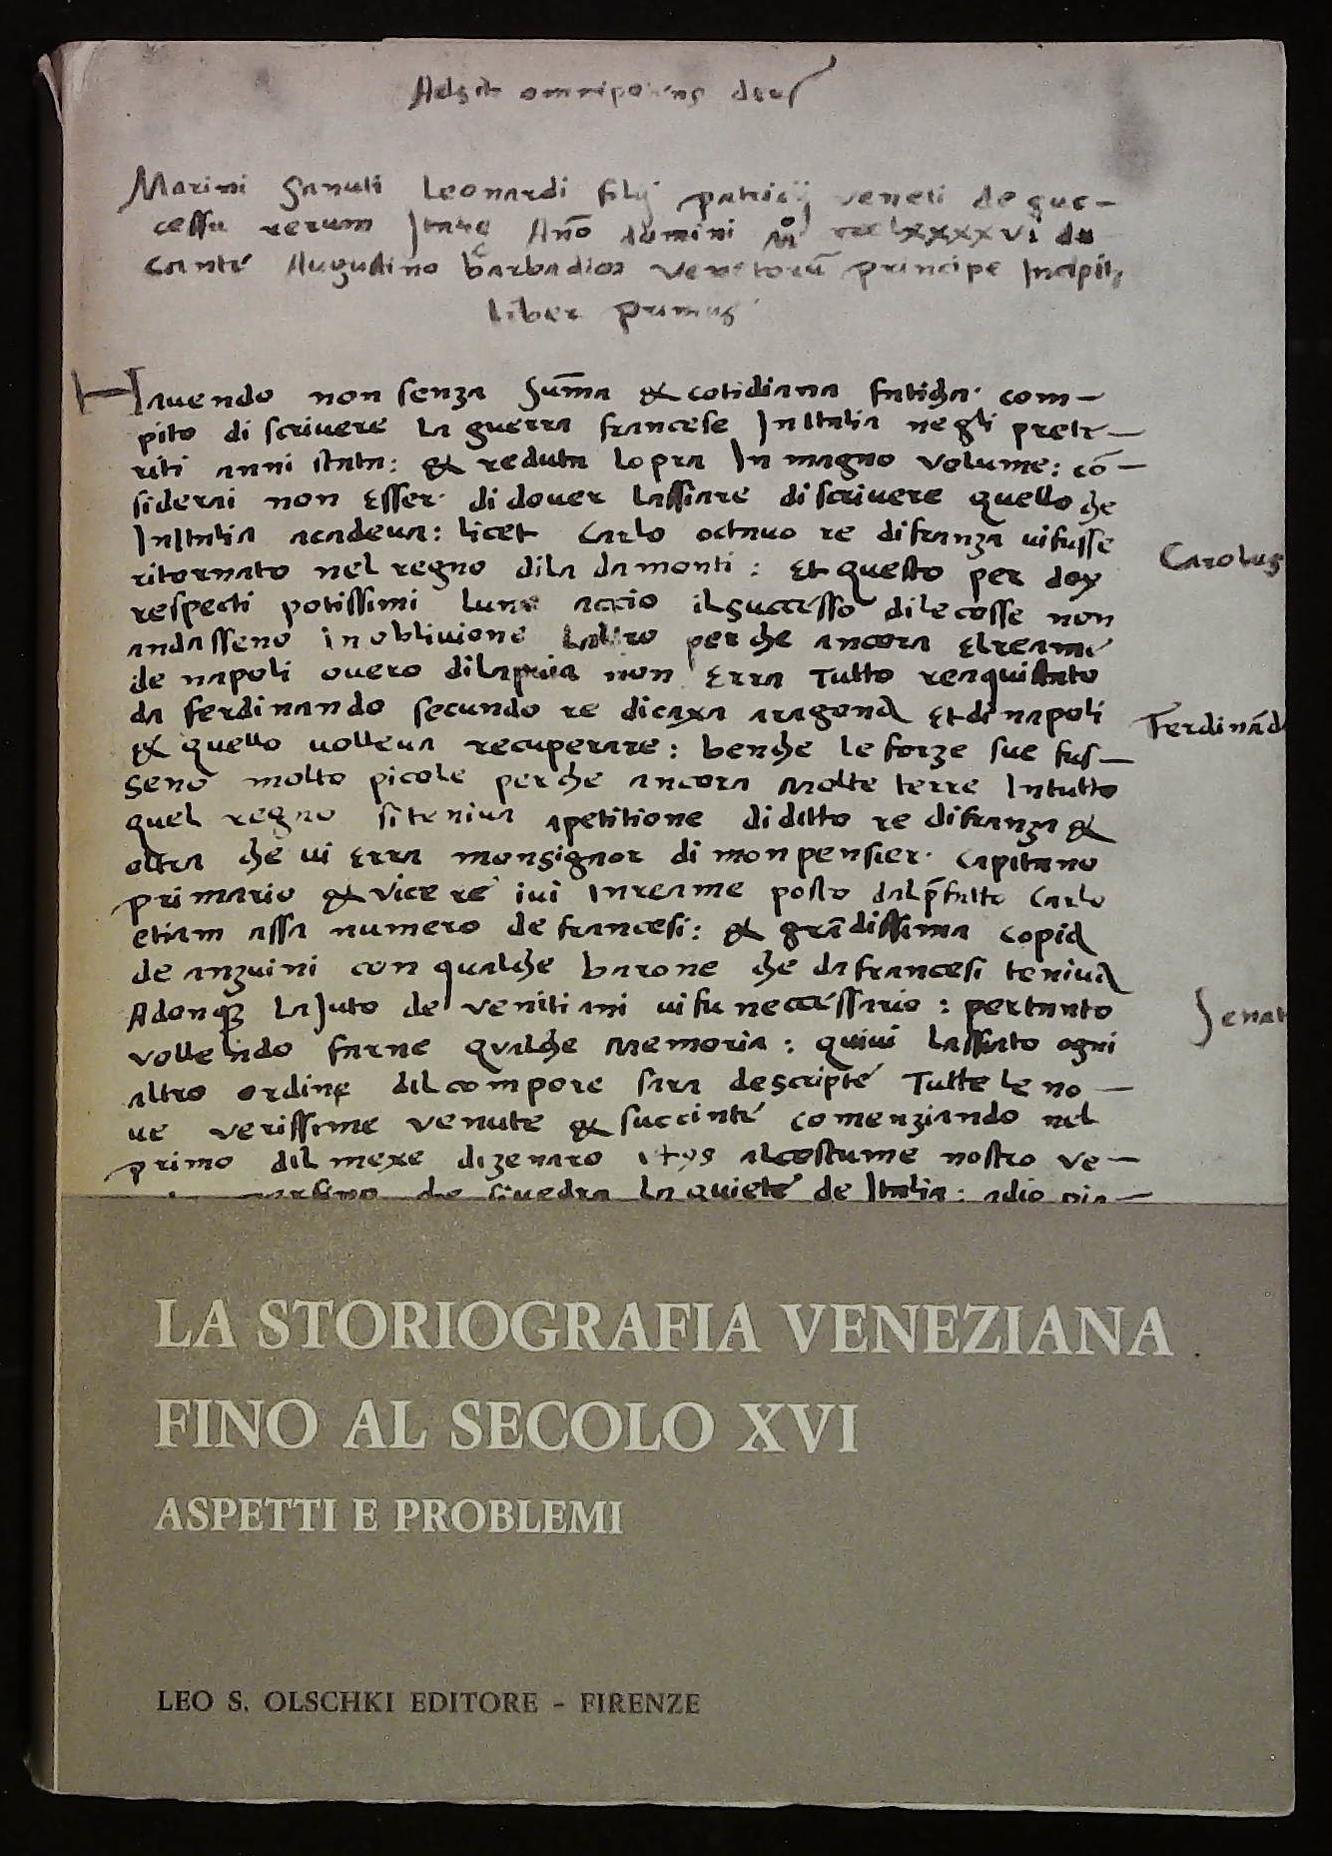 Adsit omnipotens deus
Marini Sanuti Leonardi filij patricij veneti de suc-
cessu rerum Italię Año domini Mº cccclxxxxvi du
cante Augustino barbadico Venetorū principe Incipit
liber primus
Havendo non senza sum̄a & cotidiana faticha com-
pito di scrivere la guerra francese In Italia negli prete-
riti anni stata: & reduta lopra In magno volume: cō-
siderai non esser di dover lassare di scrivere quello che
In Italia acadeva: licet Carlo octavo re di franza vi fusse
ritornato nel regno di la da monti: Et questo per doy
respecti potissimi luno accio il successo di le cosse non
andasseno in oblivione laltro perche ancora el reame
de napoli overo di la puia non erra tutto reaquistato
da ferdinando secundo re di caxa aragona Et di napoli
& quello volleva recuperare: benche le forze sue fus-
seno molto picole perche ancora molte terre In tutto
quel regno si teniva a petitione di ditto re di franza &
oltra che vi erra monsignor di monpensier capitano
primario & vice re ivi In reame posto dal p̄fatto Carlo
etiam assa numero de francesi: & grādissima copia
de anzuini con qualche barone che da francesi teniva
Adonqȝ la Juto de venitiani vi fu necessario: pertanto
vollendo farne qualche memoria: quivi lassato ogni
altro ordine dil compore sara descripte Tutte le no-
ve verissime venute & succinte comenziando nel
primo dil mexe di zenaro 1495 al costume nostro ve-
la quiete de Italia: adio pia-
Carolus
Ferdinād
Senat
LA STORIOGRAFIA VENEZIANA
FINO AL SECOLO XVI
ASPETTI E PROBLEMI
LEO S. OLSCHKI EDITORE - FIRENZE